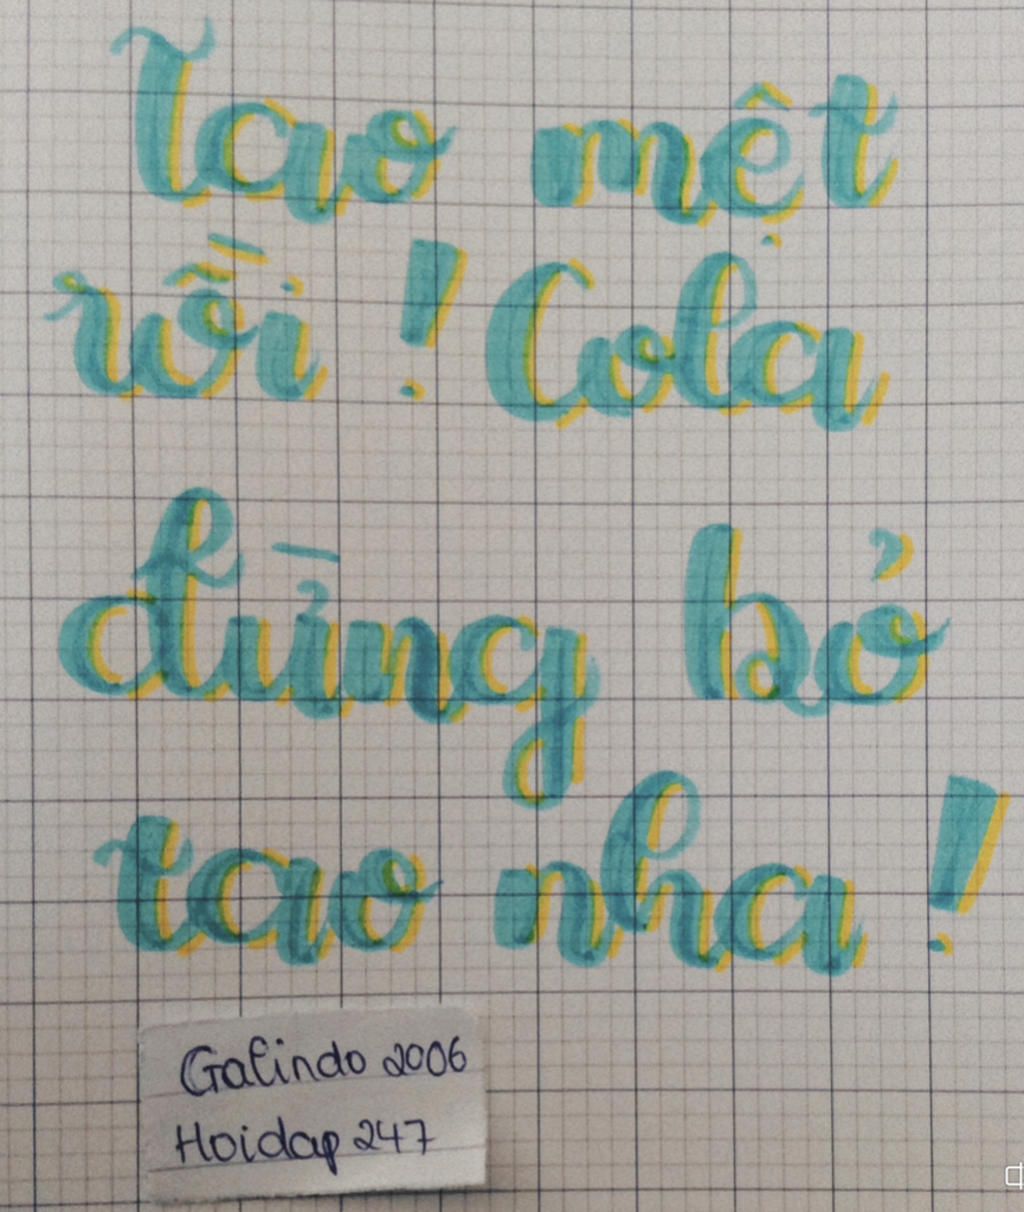 Tao mệt
rồi ! Cola
đừng bỏ
tao nha !
Galindo 2006
Hoidap 247